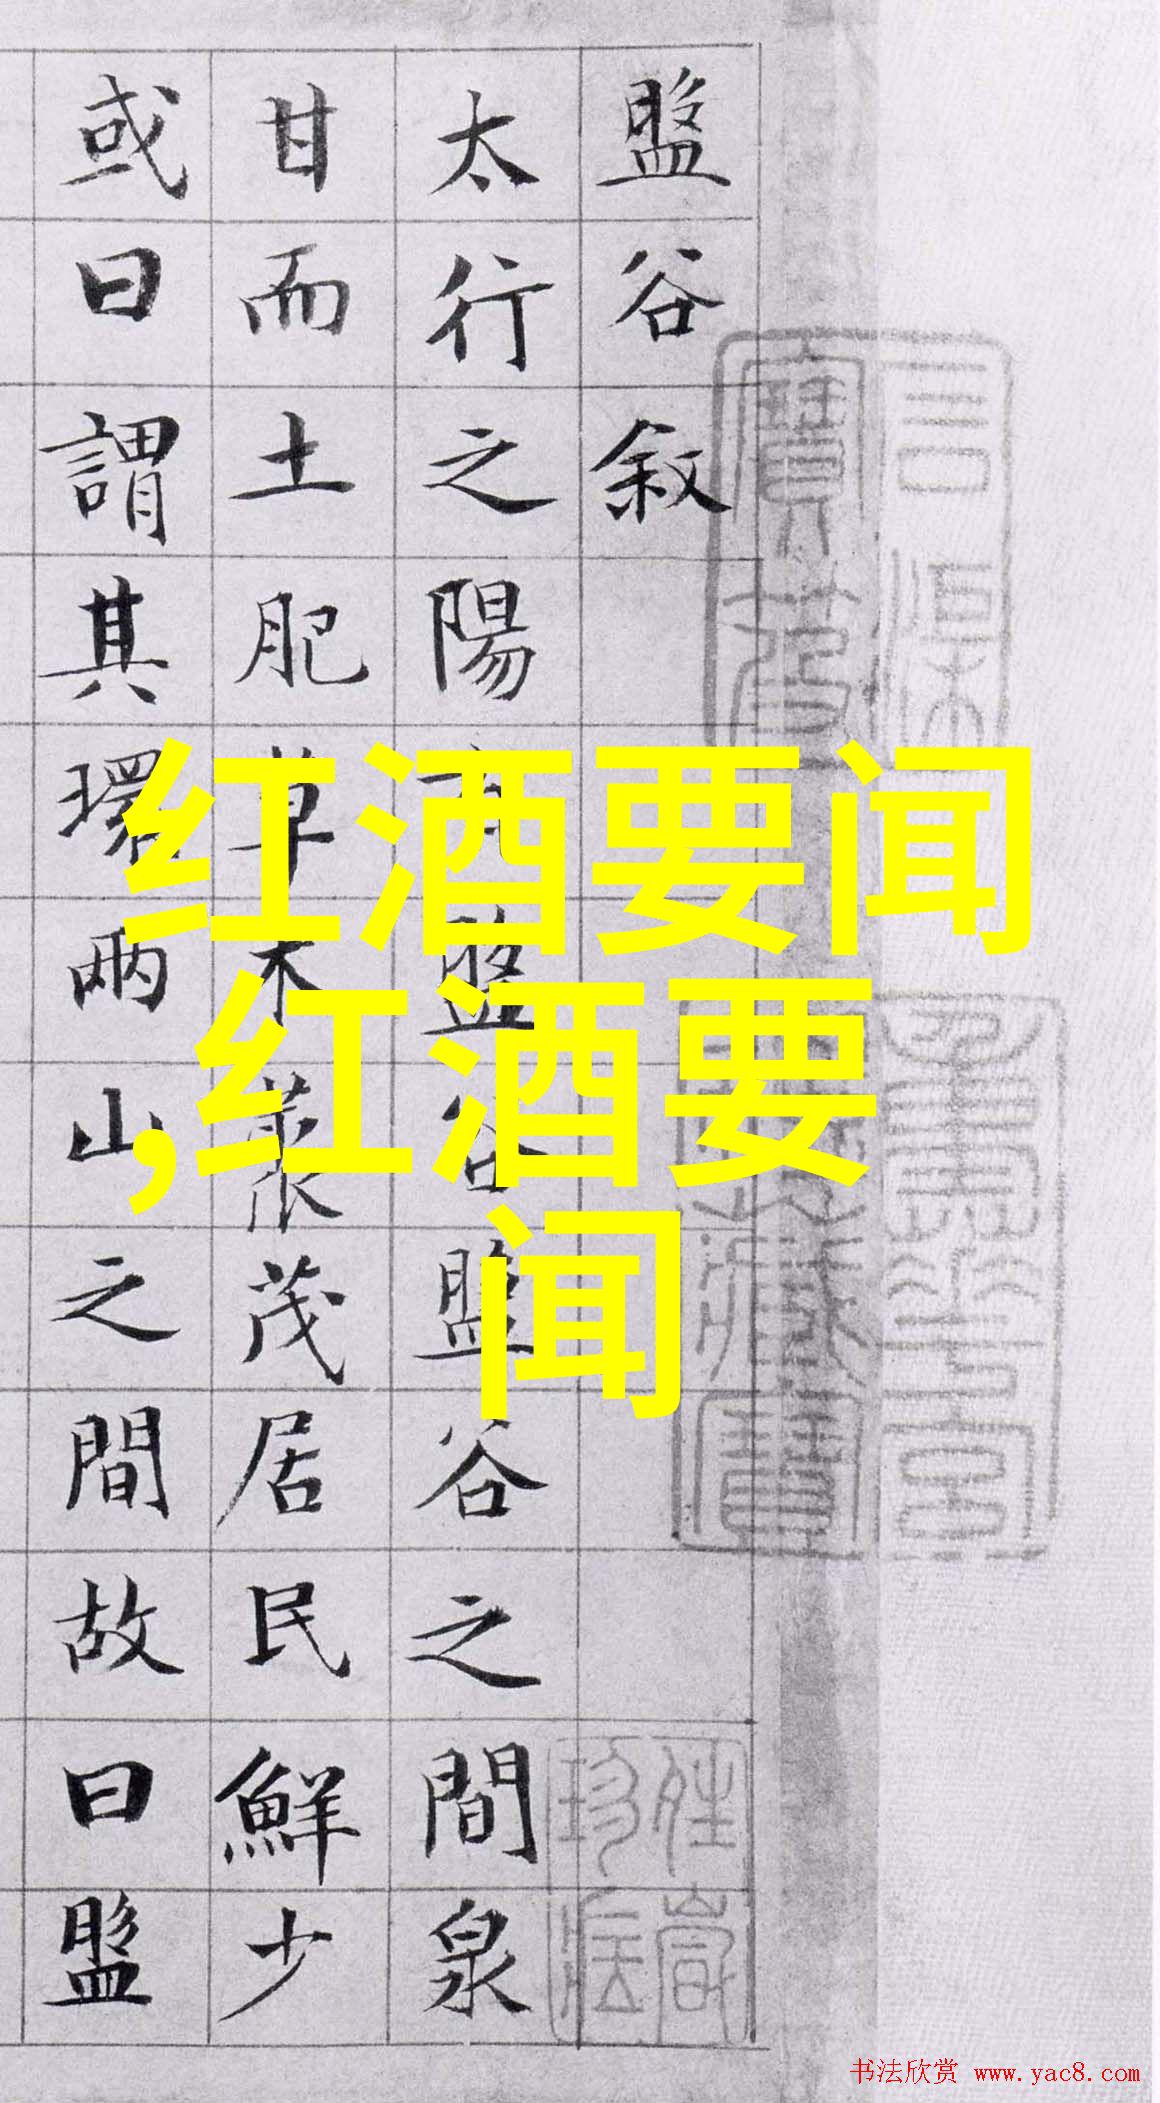 盤谷敘
太行之陽有盤谷盤谷之間泉
甘而土肥草木叢茂居民鮮少
或曰謂其環兩山之間故曰盤
红酒要闻
,红酒要
闻
书法欣赏 www.yac8.com